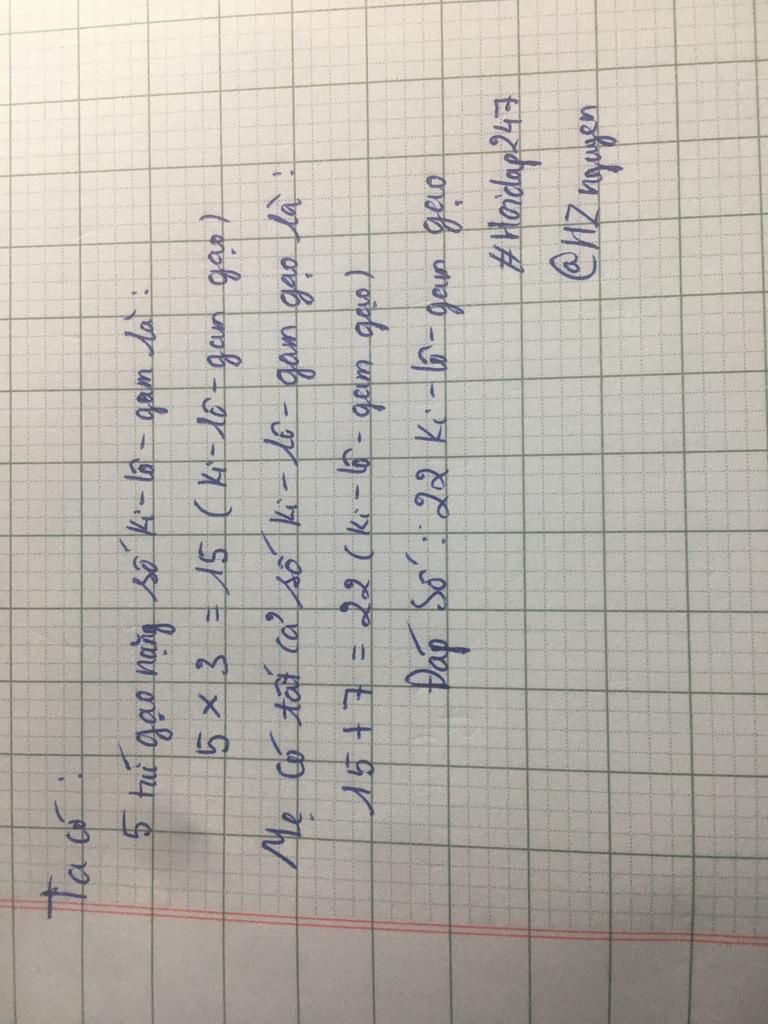 Ta có :
5 túi gạo nặng số ki-lô-gam là :
5 x 3 = 15 ( ki-lô-gam gạo )
Mẹ có tất cả số ki-lô-gam gạo là :
15 + 7 = 22 ( ki-lô-gam gạo )
Đáp số : 22 ki-lô-gam gạo
#Hoidap247
@HZ nguyen